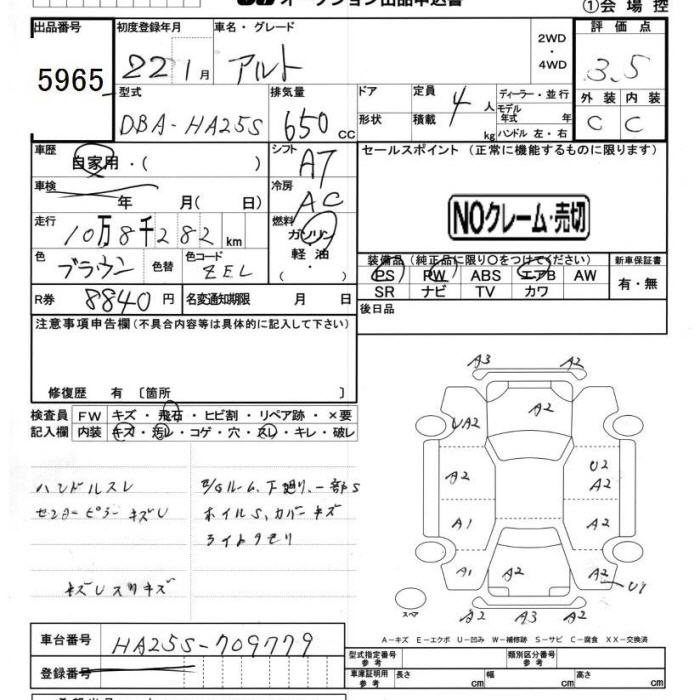 オークション出品申込書
①会場控
出品番号 初度登録年月 車名・グレード 2WD・4WD 評価点
5965 22 1月 アルト 3.5
型式 排気量 ドア 定員 4人 ディーラー・並行 外装 内装
DBA-HA25S 650cc 形状 積載 kg モデル年式 年 C C
ハンドル 左・右
車歴 自家用・( ) シフト AT セールスポイント(正常に機能するものに限ります)
車検 年 月( 日) 冷房 AC
NOクレーム・売切
走行 10万8千282km 燃料 ガソリン・軽油・( )
色 ブラウン 色替 色コード ZEL
装備品(純正品に限り○をつけてください) 新車保証書
PS PW ABS エアB AW 有・無
SR ナビ TV カワ
R券 8840円 名変通知期限 月 日
後日品
注意事項申告欄(不具合内容等は具体的に記入して下さい)
修復歴 有〔箇所 〕
検査員記入欄 FW キズ・飛石・ヒビ割・リペア跡・×要
内装 キズ・汚レ・コゲ・穴・スレ・キレ・破レ
ハンドルスレ
センターピラーキズU
キズUスリキズ
B/Gルーム、下廻り、一部S
ホイルS、カバーキズ
ライトクモリ
A3 A2
A2
UA2
A2 U2 A2
A1 A2
A1 A2 A2 U1
スペア A2 A3 A2
A-キズ E-エクボ U-凹み W-補修跡 S-サビ C-腐食 XX-交換済
車台番号 HA25S-709779
型式指定番号 参考 類別区分番号 参考
登録番号
車庫証明用 参考 長さ cm 幅 cm 高さ cm